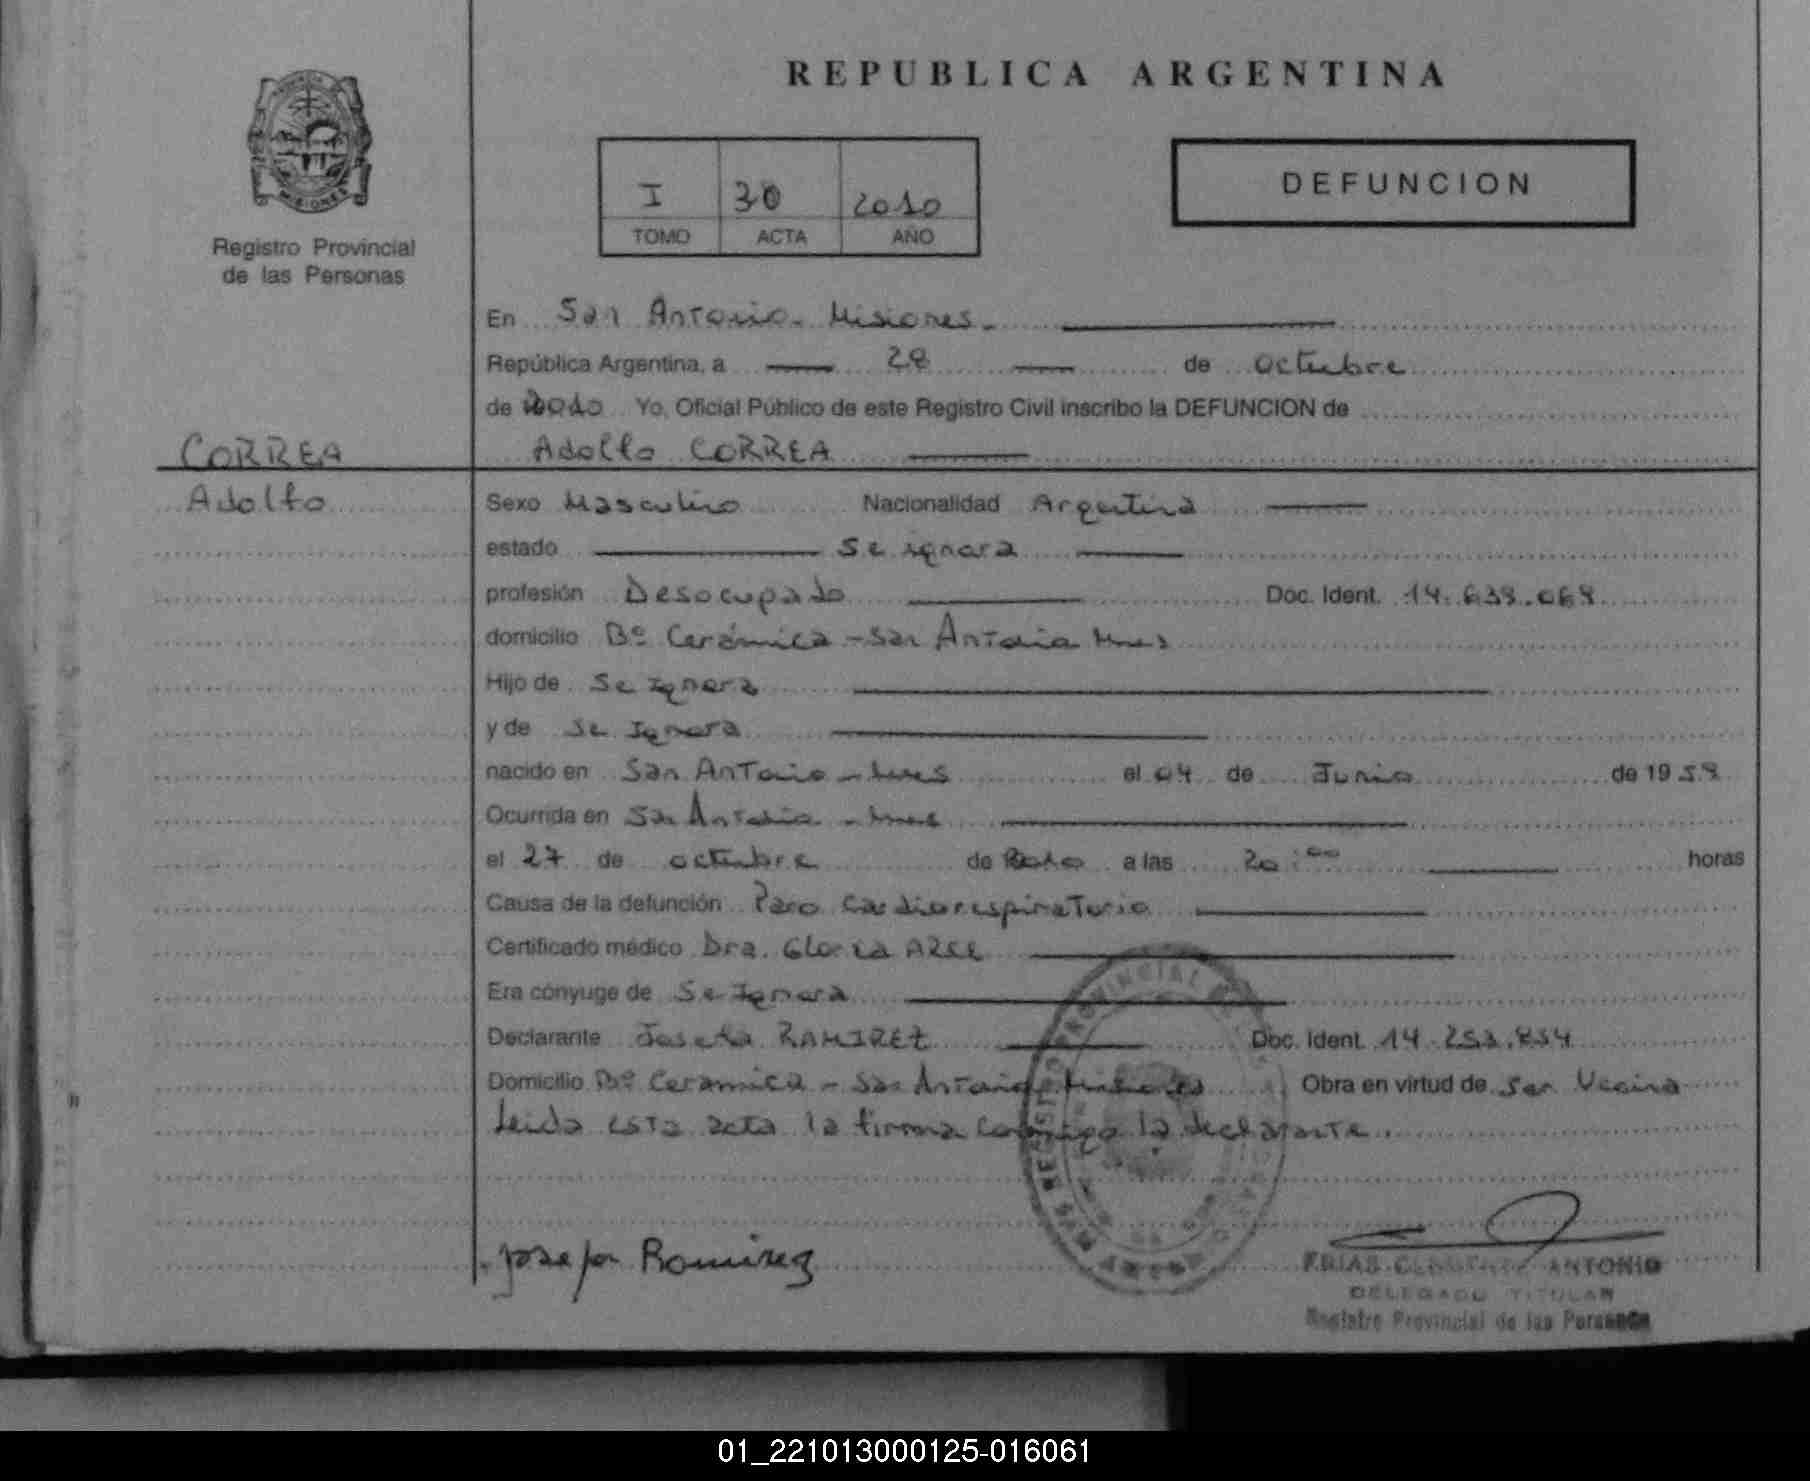 REPUBLICA ARGENTINA
MISIONES
Registro Provincial
de las Personas
I 30 2010
TOMO ACTA AÑO
DEFUNCION
En San Antonio - Misiones -
República Argentina, a 28 de octubre
de 2010 Yo, Oficial Público de este Registro Civil inscribo la DEFUNCION de
CORREA
Adolfo CORREA
Adolfo
Sexo Masculino Nacionalidad Argentina
estado Se ignora
profesión Desocupado Doc. Ident.
domicilio Bº Cerámica - San Antonio Mnes
Hijo de Se Ignora
y de Se Ignora
nacido en San Antonio - Mnes el 04 de Junio de 19
Ocurrida en San Antonio - Mnes
el 27 de octubre de 2010 a las 20:00 horas
Causa de la defunción Paro Cardiorespiratorio
Certificado médico Dra. Gloria
Era cónyuge de Se Ignora
Declarante Josefa RAMIREZ Doc. Ident. 14.253.834
Domicilio Bº Ceramica - San Antonio - Misiones Obra en virtud de Ser Vecina
Leida esta acta la firma conmigo la declarante.
Josefa Ramirez
FRIAS CLEMENTE ANTONIO
DELEGADO TITULAR
Registro Provincial de las Personas
01_221013000125-016061